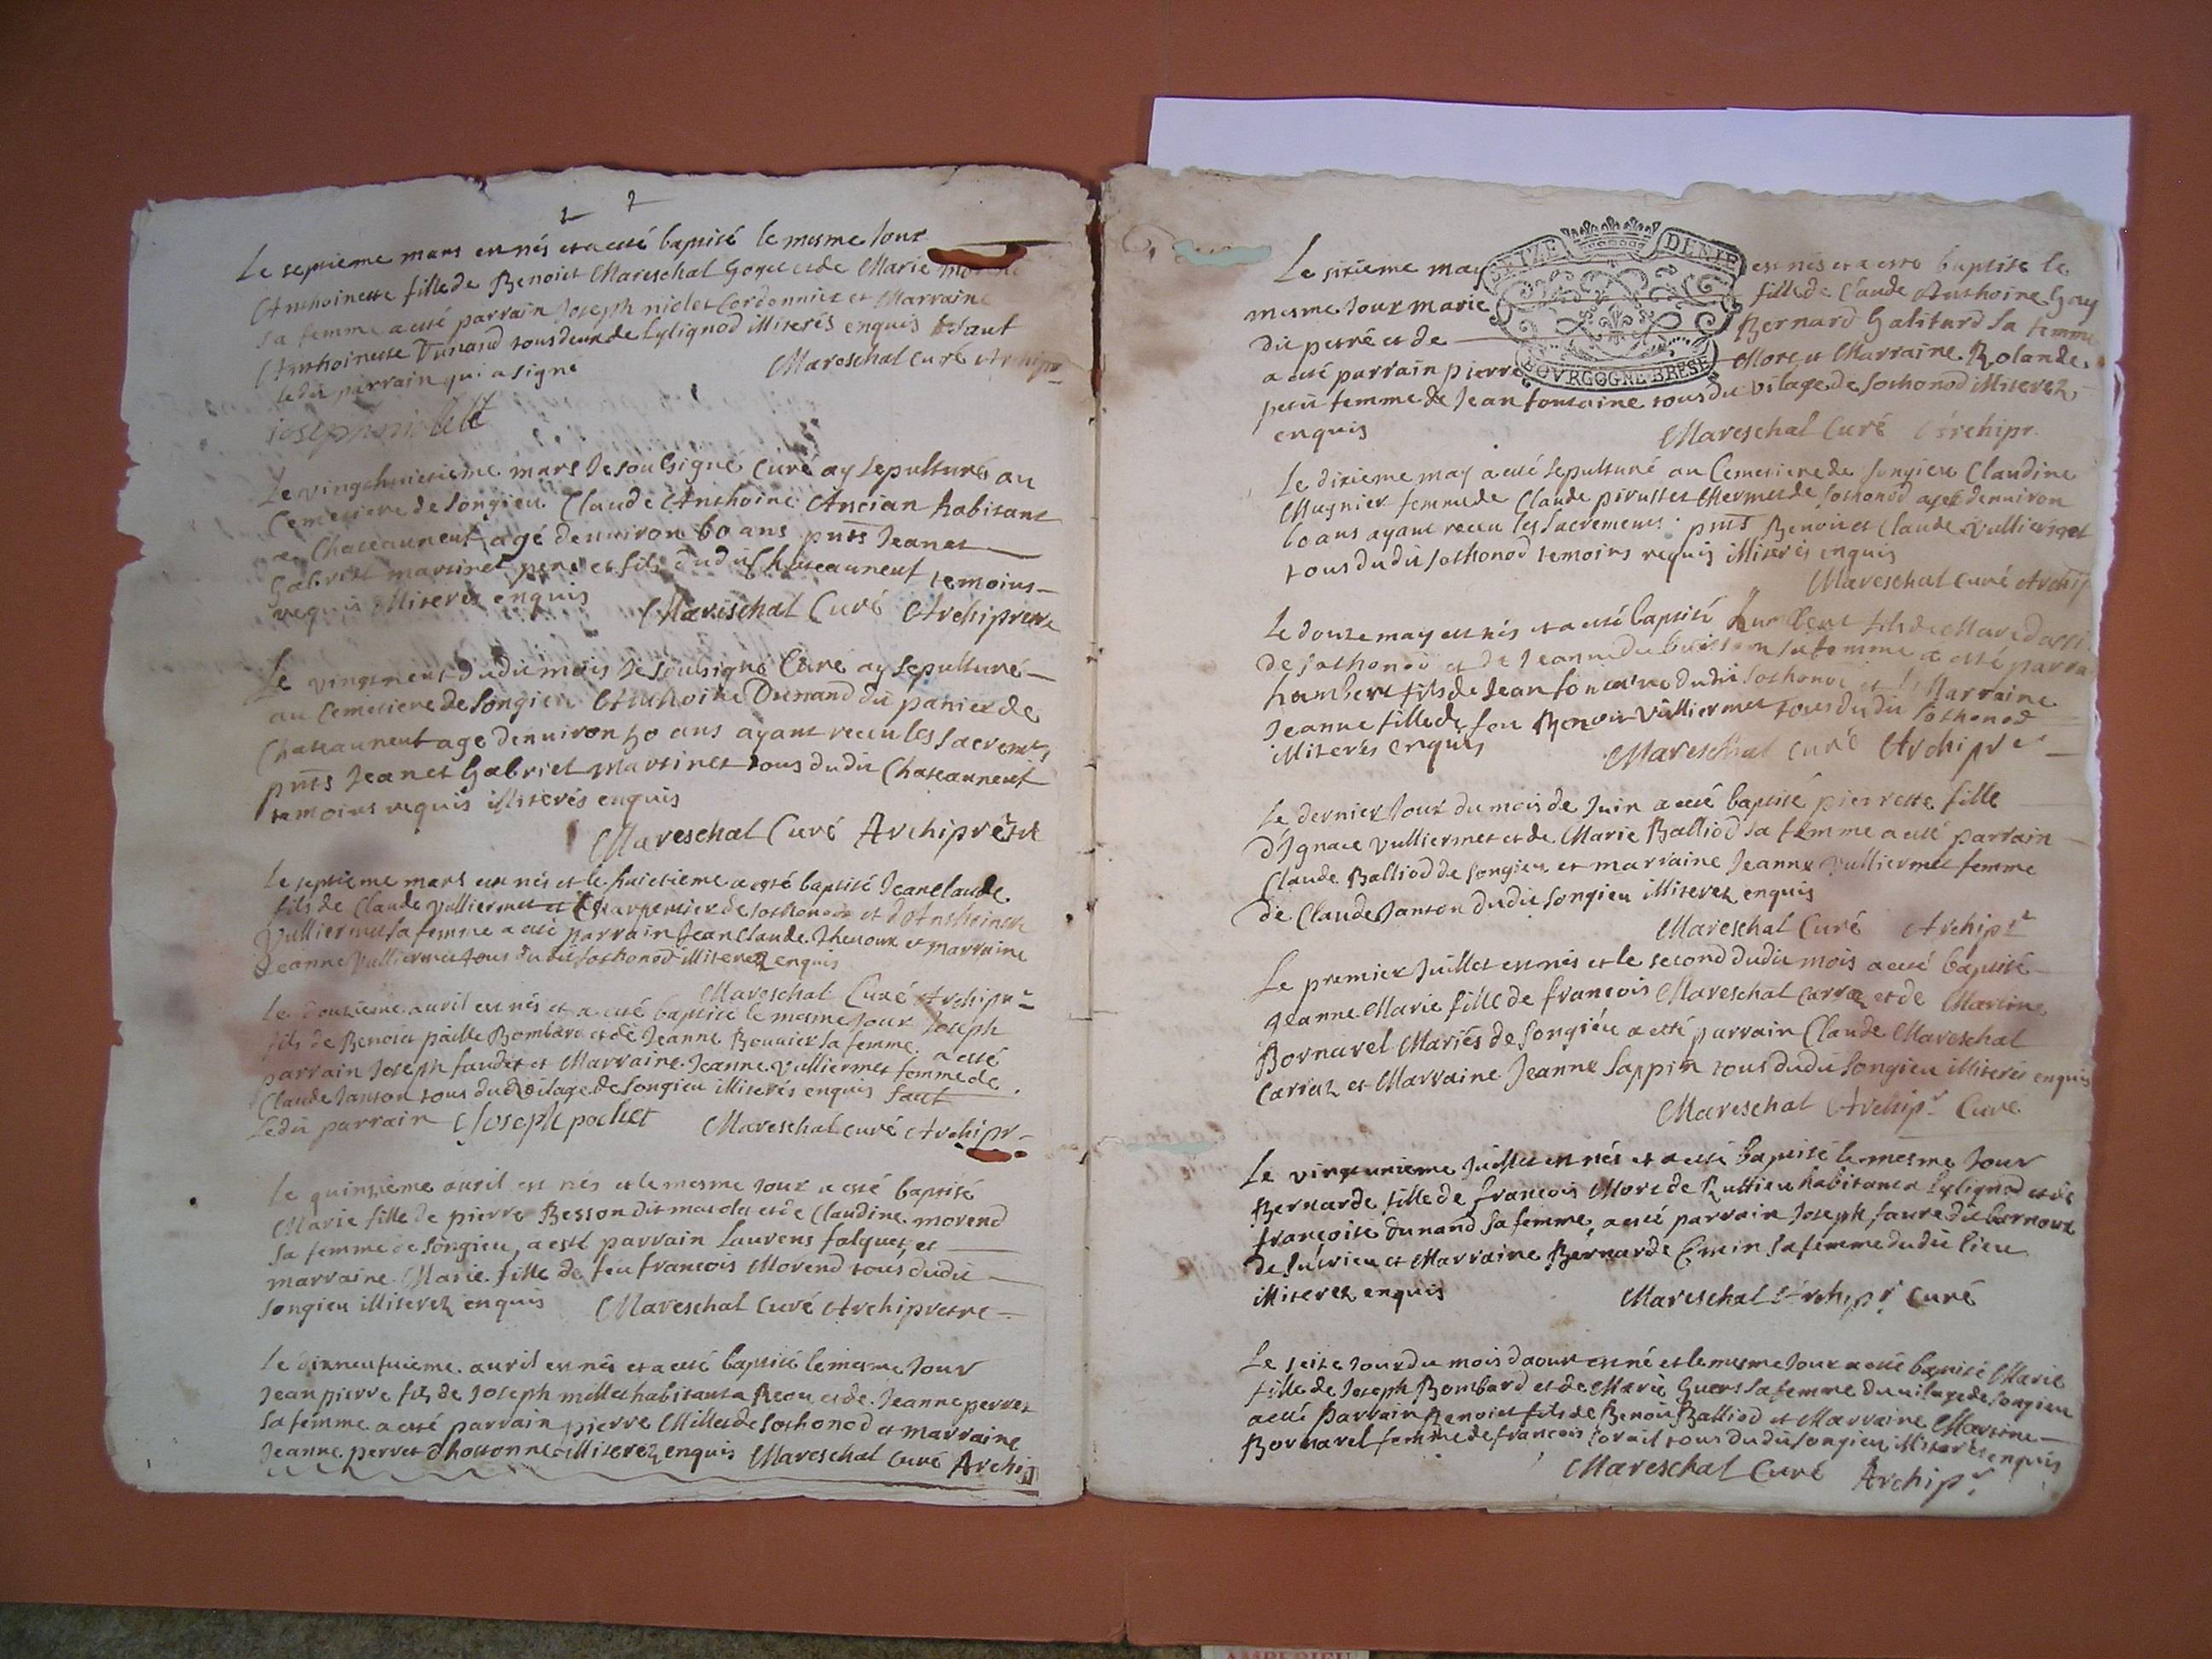 Le septieme mars est nés et a esté baptisé le mesme Jour
Anthoinette fille de Benoist Mareschal Goyet et de Marie
sa femme a esté parrain Joseph niolet Cordonnier et Marraine
Anthoinette Dunand tous deux de Lylignod illiterés enquis saut
ledit parrain qui a signé Mareschal curé Archipr
joseph niollett
Le vingthuictieme mars Je soulsigné Curé ay sepulturé au
Cemetiere de Songieu Claude Anthoine Ancian habitant
a Chateauneuf agé denuiron 60 ans pnts Jean et
Gabriel martinet pere et fils dudit Chateauneuf temoins
requis illiterés enquis Mareschal Curé Archiprere
Le vingtneuf dudit mois Je soulsigné Curé ay sepulturé
au Cemetiere de Songieu Anthoine Dunand du panier de
Chateauneuf agé denuiron 50 ans ayant receu les sacrements
pnts Jean et Gabriel Martinet tous dudit Chateauneuf
temoins requis illiterés enquis
Mareschal Curé Archiprêtre
Le septieme mars est nés et le huictieme a esté baptisé Jeanclaude
fils de Claude Vulliermet Charpentier de Sothonod et d'Anthoinette
Vulliermet sa femme a esté parrain Jean Claude Thenoux et marraine
Jeanne Vulliermet tous dudit Sothonod illiterez enquis
Mareschal Curé Archipr
Le douzieme auril est nés et a esté baptisé le mesme Jour Joseph
fils de Benoist paille Bombard et de Jeanne Bouuier sa femme a esté
parrain Joseph et Marraine Jeanne Vulliermet femme de
Claude Janton tous du vilage de Songieu illiterés enquis saut
Ledit parrain Joseph pochet Mareschal curé Archipr
Le quinzieme auril est nés et le mesme Jour a esté baptisé
Marie fille de pierre Besson dit et de Claudine morend
sa femme de Songieu, a esté parrain Laurens falquet, et
marraine Marie fille de feu francois Morend tous dudit
Songieu illiterez enquis Mareschal Curé Archipretre
Le dixneufuieme auril est nés et a esté baptisé le mesme Jour
Jean pierre fils de Joseph millet habitant a et de Jeanne perret
sa femme a esté parrain pierre Millet de Sothonod et marraine
Jeanne perret d'hottonne illiterez enquis Mareschal Curé Archip
SAIZE DENIE
BOVRGOGNE BRESSE
Le sixieme may est nés et a esté baptisé le
mesme Jour marie fille de Claude Anthoine Gay
dit petré et de Bernard Galifard sa femme
a esté parrain pierre More et Marraine Rolande
petit femme de Jean fontaine tous du vilage de Sothonod illiterez
enquis Mareschal Curé Archipr
Le dixieme may a esté sepulturé au Cemetiere de Songieu Claudine
Magnier femme de Claude Mermet de Sothonod agée denuiron
60 ans ayant receu les sacrements pnts Benoit et Claude Vulliermet
tous dudit Sothonod temoins requis illiterés enquis
Mareschal curé Archip
Le douze may est nés et a esté baptisé humbert fils de
de Sothonod et de Jeanne sa femme a esté parra
humbert fils de Jean fontaine dudit Sothonod et Marraine
Jeanne fille de feu Benoit Vulliermet tous dudit Sothonod
illiterés enquis Mareschal curé Archipr
Le dernier Jour du mois de Juin a esté baptisé pierrette fille
d'Ignace Vulliermet et de Marie Balliod sa femme a esté parrain
Claude Balliod de Songieu et marraine Jeanne Vulliermet femme
de Claude Janton dudit Songieu illiterez enquis
Mareschal Curé Archipr
Le premier Juillet est nés et le second dudit mois a esté baptisé
Jeanne Marie fille de francois Mareschal Carraz et de Martine
Bornarel Mariés de Songieu a esté parrain Claude Mareschal
Carraz et Marraine Jeanne Sappin tous dudit Songieu illiterés enquis
Mareschal Archipr Curé
Le vingtunieme Juillet est nés et a esté baptisé le mesme Jour
Bernarde fille de francois More de Ruffieu habitant a Lylignod et de
francoise dunand sa femme, a esté parrain Joseph faure dit bernoux
de Sutrieu et Marraine Bernarde sa femme dudit lieu
illiterez enquis Mareschal Archipr Curé
Le seize Jour du mois d'aoust est né et le mesme Jour a esté baptisé Marie
fille de Joseph Bombard et de Marie Guers sa femme du vilage de Songieu
a esté Parrain Benoist fils de Benoit Balliod et Marraine Martine
Bornarel femme de francois tous dudit Songieu illiterés enquis
Mareschal Curé Archipr